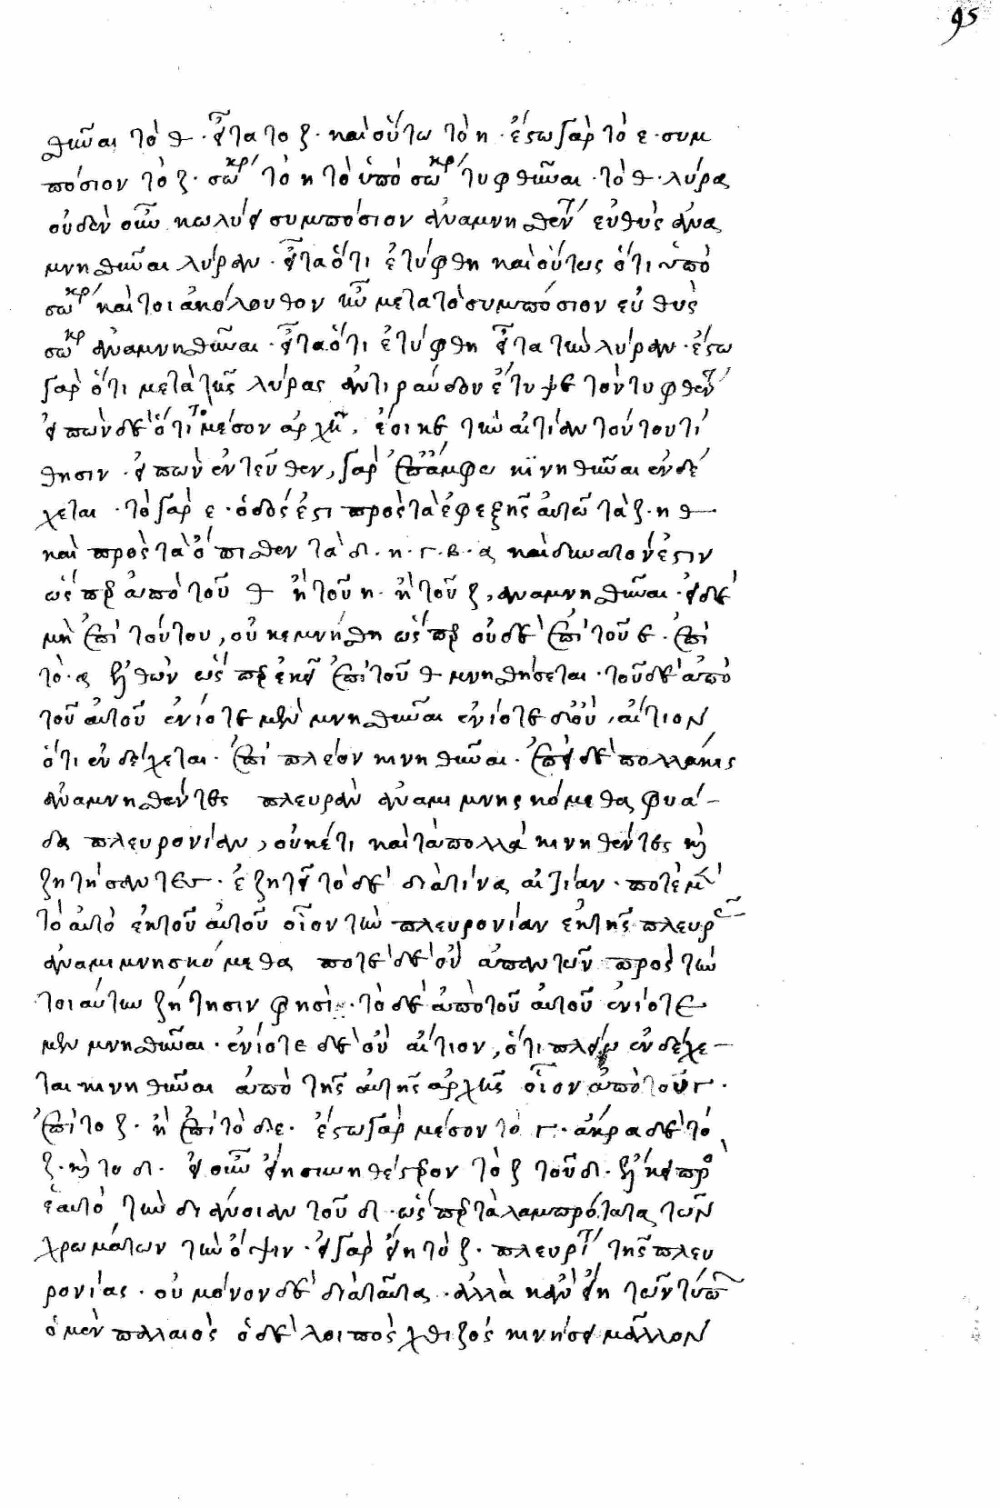 95
θῆναι τὸ θ· εἶτα τὸ ζ· καὶ οὕτω τὸ η· ἔστω γὰρ τὸ ε· συμ
πόσιον τὸ ζ· σωκρ´ τὸ η τὸ ὑπὸ σωκρ´ τυφθῆναι· τὸ θ· λύρας
οὐδὲν οὖν κωλύει συμπόσιον ἀναμνησθέντ´ εὐθὺς ἀνα
μνησθῆναι λύραν· εἶτα ὅτι ἐτύφθη καὶ οὕτως ὅτι ὑπὸ
σωκρ´ καίτοι ἀκόλουθον ἦν μετὰ τὸ συμπόσιον εὐθὺς
σωκρ ἀναμνησθῆναι· εἶτα ὅτι ἐτύφθη εἶτα τὴν λύραν· ἔστω
γὰρ ὅτι μετὰ τῆς λύρας ἀντὶ ῥάβδου ἔτυψε τὸν τυφθέντ´
εἰπὼν δὲ ὅτι τὸ μέσον ἀρχῆ, ἔοικε τὴν αἰτίαν τούτου τί
θησιν· εἰπὼν ἐντεῦθεν, γὰρ ἐπ᾽ ἄμφω κινηθῆναι ἐνδέ
χεται· τὸ γὰρ ε· ὁδός ἐστι πρὸς τὰ ἐφεξῆς αὐτῶ τὰ ζ· η θ
καὶ πρὸς τὰ ὄπισθεν τὰ δ· η· γ· β· α καὶ δυνατόν ἐστιν
ὥσπερ ἀπὸ τοῦ θ ἢ τοῦ η· ἢ τοῦ ζ, ἀναμνησθῆναι· εἰ δὲ
μὴ ἐπὶ τούτου, οὐκ ἐμνήσθη ὥσπερ οὐδὲ ἐπὶ τοῦ ε· ἐπὶ
τὸ· α ἐλθὼν ὥσπερ ἐκεῖ ἐπὶ τοῦ θ μνησθήσεται· τοῦ δὲ ἀπὸ
τοῦ αὐτοῦ ἐνίοτε μὲν μνησθῆναι ἐνίοτε δ᾽ οὔ, αἴτιον
ὅτι ἐνδέχεται· ἐπὶ πλέον κινηθῆναι· ἐπεὶ δὲ πολλάκις
ἀναμνησθέντες πλευρὰν ἀναμιμνησκόμεθα φυά-
δα πλευρονίαν, οὐκέτι καίτα πολλὰ κινηθέντες καὶ
ζητήσαντες· ἐζητεῖτο δὲ διὰ τίνα αἰτίαν· ποτὲ μὲν
τὸ αὐτὸ ἐκ τοῦ αὐτοῦ οἷον τὴν πλευρονίαν ἐκ τῆς πλευρ
ἀναμιμνησκόμεθα ποτὲ δὲ οὔ ἀπαντῶν πρὸς τὴν
τοιαύτην ζήτησιν φησὶ· τὸ δὲ ἀπὸ τοῦ αὐτοῦ ἐνίοτε
μὲν μνησθῆναι· ἐνίοτε δὲ οὔ αἴτιον, ὅτι πλείω ἐνδέχε-
ται κινηθῆναι ἀπὸ τῆς αὐτῆς ἀρχῆς οἷον ἀπὸ τοῦ γ·
ἐπὶ τὸ ζ· ἢ ἐπὶ τὸ δ ε· ἔστω γὰρ μέσον τὸ γ· ἄκρα δὲ τὸ
ζ· καὶ τὸ δ· εἰ οὖν εἴη σινηθέστερον τὸ ζ τοῦ δ· ἕλκει πρὸς
ἑαυτὸ τὴν διάνοιαν τοῦ δ· ὥσπερ τὰ λαμπρότατα τῶν
χρωμάτων τὴν ὄψιν· εἰ γὰρ εἴη τὸ ζ· πλευριτ´ τῆς πλευ
ρονίας· οὐ μόνον δὲ διὰ ταῦτα· ἀλλὰ κἂν εἴη τῶν τύπων
ὁ μὲν παλαιὸς ὁ δὲ λοιπὸς χθιζός κινήσει μᾶλλον